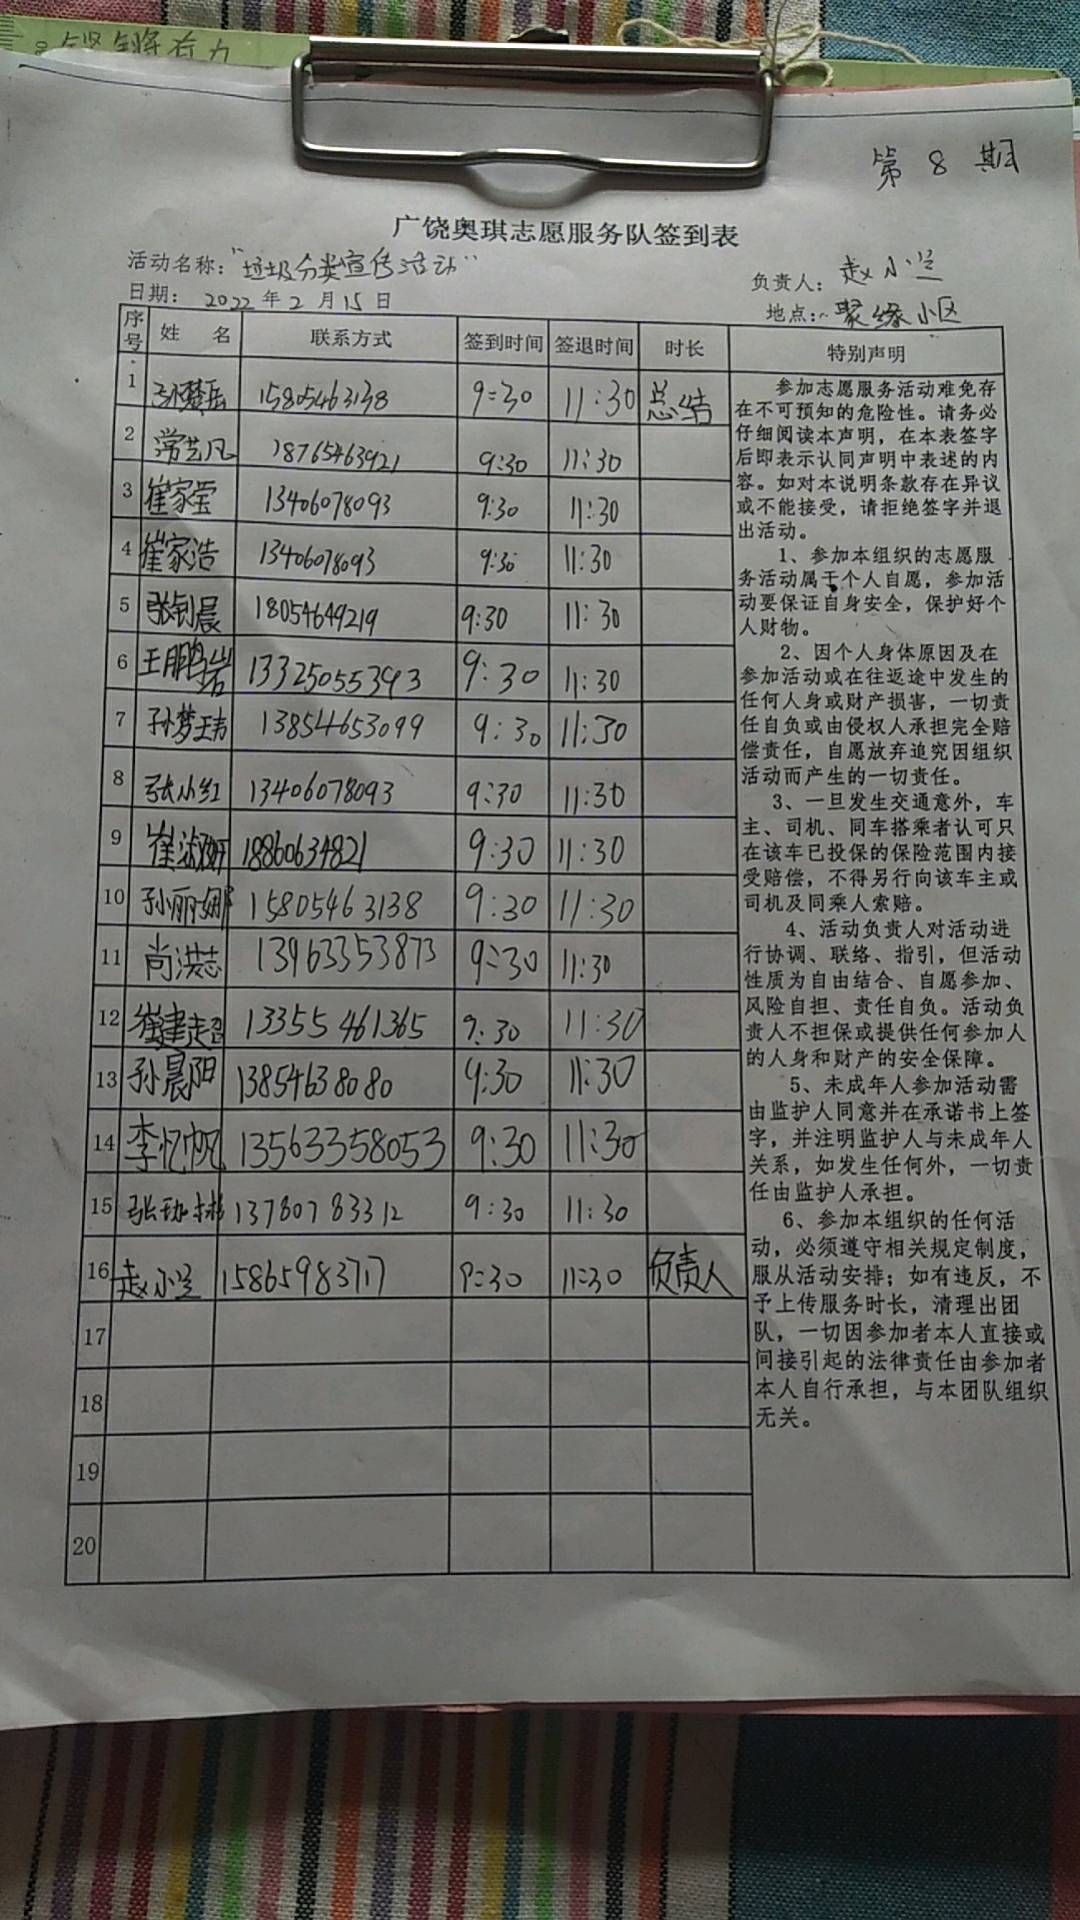 第 8 期
广饶奥琪志愿服务队签到表
活动名称："垃圾分类宣传活动"
负责人：赵小兰
日期： 2022 年 2 月 15 日
地点：聚缘小区
序号 姓 名 联系方式 签到时间 签退时间 时长 特别声明
1 孙赞岳 15805463138 9:30 11:30 总结
2 常艺凡 18765463921 9:30 11:30
3 崔家莹 13406078093 9:30 11:30
4 崔家浩 13406078093 9:30 11:30
5 张钊晨 18054649219 9:30 11:30
6 王鹏岩 13325055393 9:30 11:30
7 孙梦玮 13854653099 9:30 11:30
8 张小红 13406078093 9:30 11:30
9 崔淑妍 18860634821 9:30 11:30
10 孙丽娜 15805463138 9:30 11:30
11 尚洪志 13963353873 9:30 11:30
12 崔建超 13355461365 9:30 11:30
13 孙晨阳 13854638080 9:30 11:30
14 李忆帆 13563358053 9:30 11:30
15 张 13780783312 9:30 11:30
16 赵小兰 15865983717 9:30 11:30 负责人
17
18
19
20
参加志愿服务活动难免存
在不可预知的危险性。请务必
仔细阅读本声明，在本表签字
后即表示认同声明中表述的内
容。如对本说明条款存在异议
或不能接受，请拒绝签字并退
出活动。
1、参加本组织的志愿服
务活动属于个人自愿，参加活
动要保证自身安全，保护好个
人财物。
2、因个人身体原因及在
参加活动或在往返途中发生的
任何人身或财产损害，一切责
任自负或由侵权人承担完全赔
偿责任，自愿放弃追究因组织
活动而产生的一切责任。
3、一旦发生交通意外，车
主、司机、同车搭乘者认可只
在该车已投保的保险范围内接
受赔偿，不得另行向该车主或
司机及同乘人索赔。
4、活动负责人对活动进
行协调、联络、指引，但活动
性质为自由结合、自愿参加、
风险自担、责任自负。活动负
责人不担保或提供任何参加人
的人身和财产的安全保障。
5、未成年人参加活动需
由监护人同意并在承诺书上签
字，并注明监护人与未成年人
关系，如发生任何外，一切责
任由监护人承担。
6、参加本组织的任何活
动，必须遵守相关规定制度，
服从活动安排；如有违反，不
予上传服务时长，清理出团
队，一切因参加者本人直接或
间接引起的法律责任由参加者
本人自行承担，与本团队组织
无关。